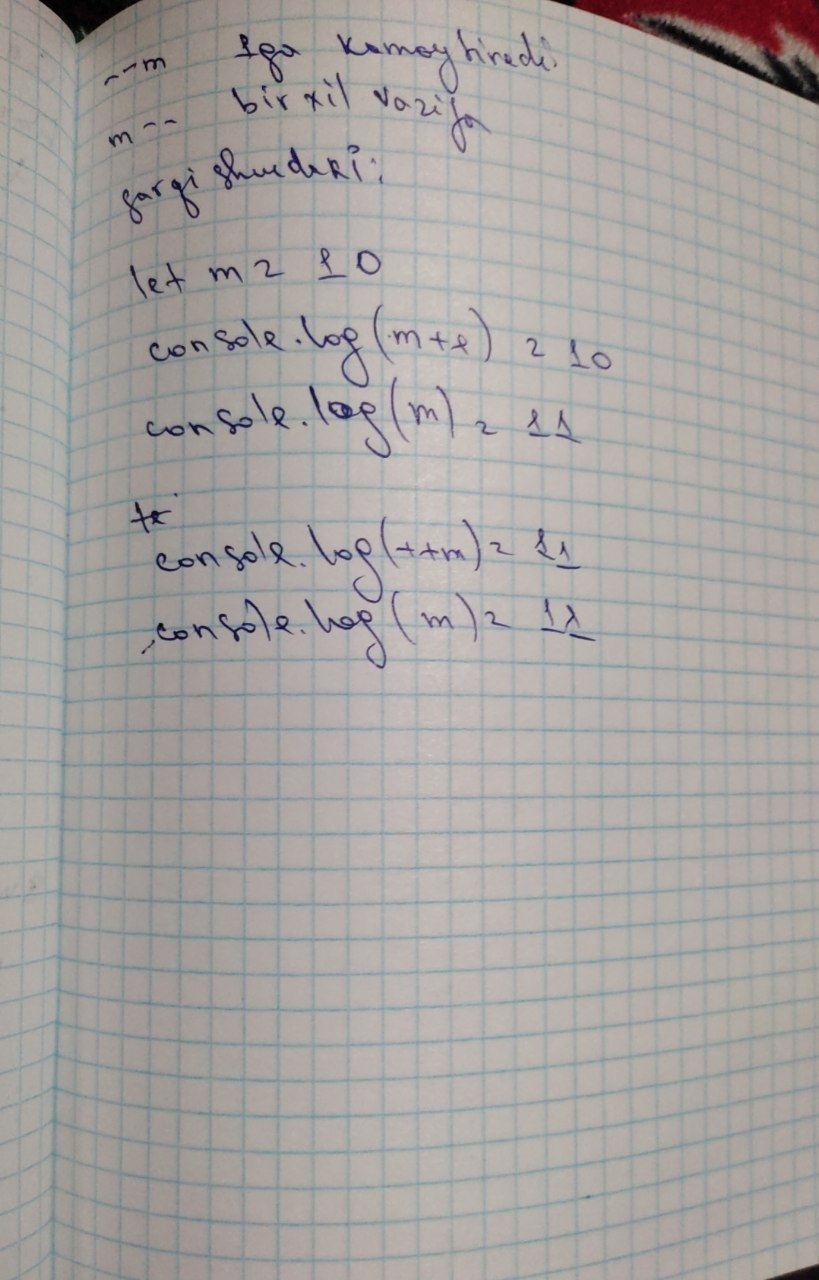 --m 1ga kamaytiradi.
m-- bir xil vazifa
farqi shundaki:
let m = 10
console.log(m++) = 10
console.log(m) = 11
console.log(++m) = 11
console.log(m) = 11